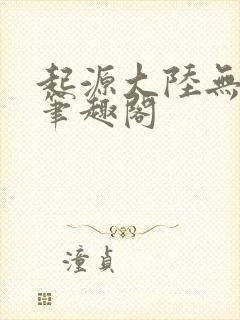 起源大陸無
筆趣閣
潼貞